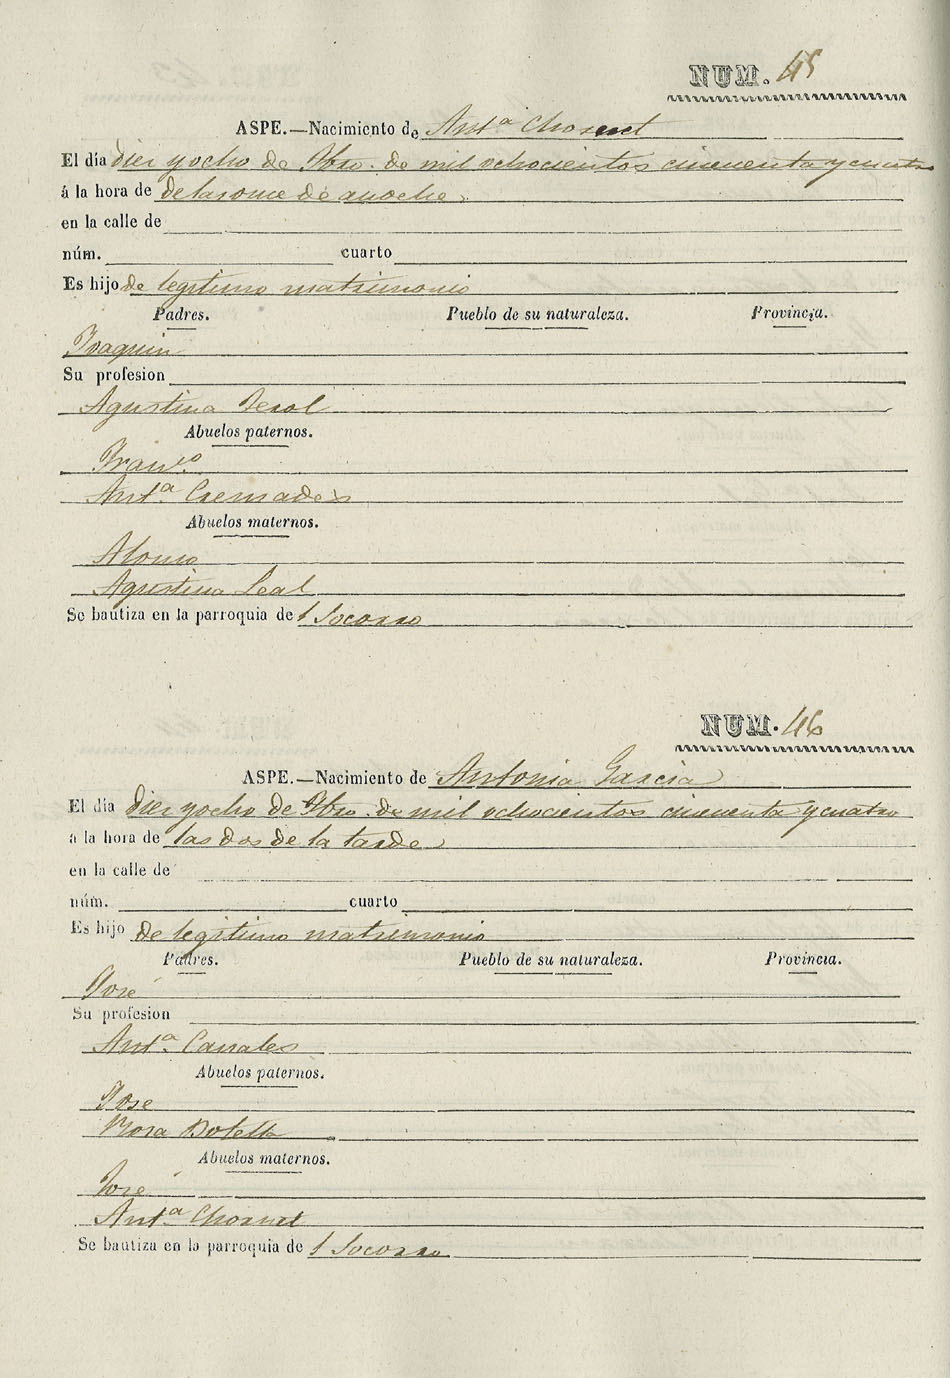 NUM. 45
ASPE.—Nacimiento de Antª Chorret
El día diez y ocho de 9bro. de mil ochocientos cincuenta y cuatro
á la hora de de las once de anoche
en la calle de
núm. cuarto
Es hijo de legitimo matrimonio
Padres. Pueblo de su naturaleza. Provincia.
Joaquin
Su profesion
Agustina
Abuelos paternos.
Franco
Antª Cremades
Abuelos maternos.
Alonso
Agustina Leal
Se bautiza en la parroquia de l Socorro
NUM. 46
ASPE.—Nacimiento de Antonia Garcia
El día diez y ocho de 9bro. de mil ochocientos cincuenta y cuatro
á la hora de las dos de la tarde
en la calle de
núm. cuarto
Es hijo de legitimo matrimonio
Padres. Pueblo de su naturaleza. Provincia.
José
Su profesion
Antª Canales
Abuelos paternos.
Jose
Rosa Botella
Abuelos maternos.
José
Antª Chorret
Se bautiza en la parroquia de l Socorro